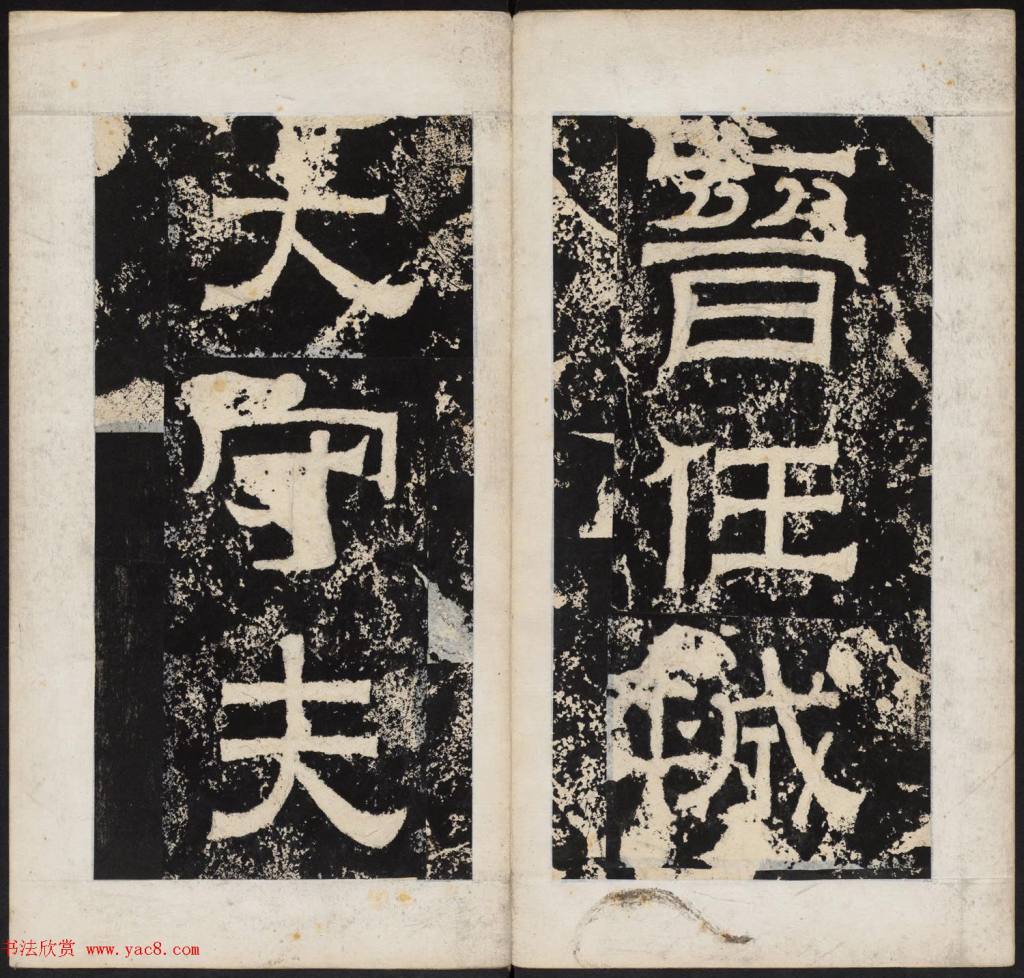 晉任城
大守夫
书法欣赏 www.yac8.com